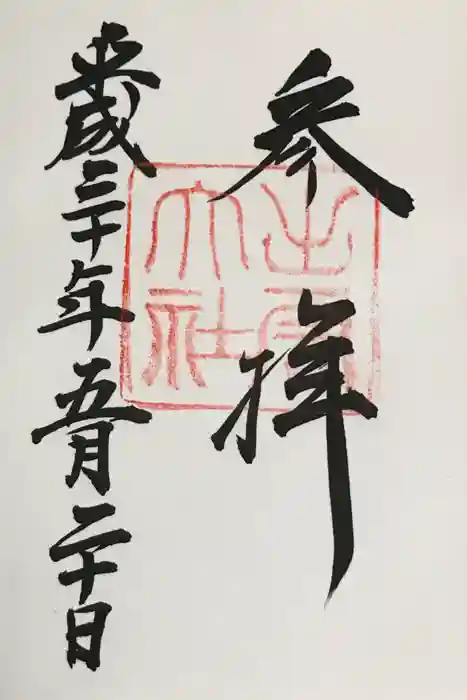 参拝
出雲大社
平成三十年五月二十日